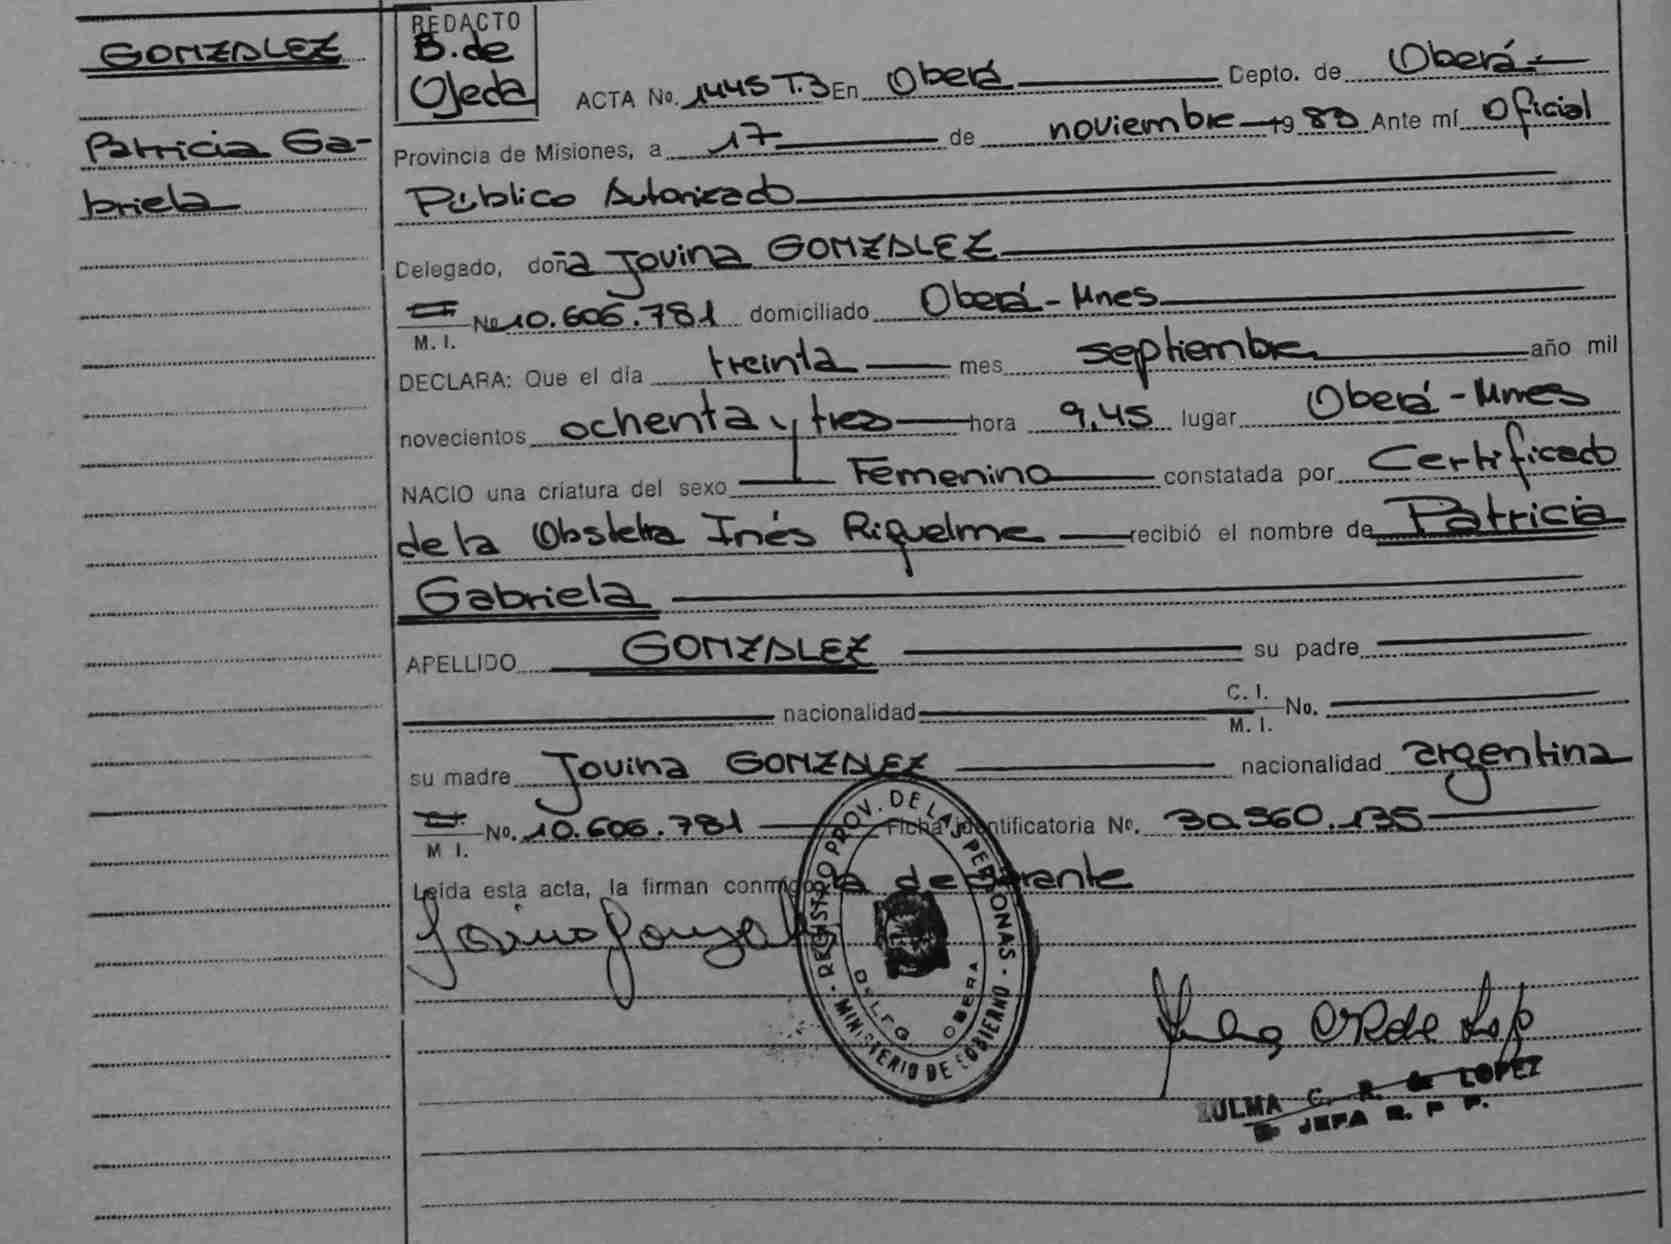 GONZALEZ
Patricia Ga-
briela
REDACTO
B. de
Ojeda
ACTA No. 1445 T.3 En Oberá Depto. de Oberá
Provincia de Misiones, a 17 de noviembre 19 83 Ante mí Oficial
Público Autorizado
Delegado, doña Jovina GONZALEZ
M. I. No 10.606.781 domiciliado Oberá - Mnes
DECLARA: Que el día treinta mes septiembre año mil
novecientos ochenta y tres hora 9,45 lugar Oberá - Mnes
NACIO una criatura del sexo Femenino constatada por Certificado
de la Obstetra Inés Riquelme recibió el nombre de Patricia
Gabriela
APELLIDO GONZALEZ su padre
nacionalidad C. I. M. I. No.
su madre Jovina GONZALEZ nacionalidad argentina
M I. No. 10.606.781 Ficha identificatoria No. 30.360.135
Leída esta acta, la firman conmigo la declarante
Jovina Gonzalez
REGISTRO PROV. DE LAS PERSONAS - MINISTERIO DE GOBIERNO -
OBERA
ZULMA C. R. de LOPEZ
JEFA R. P. P.